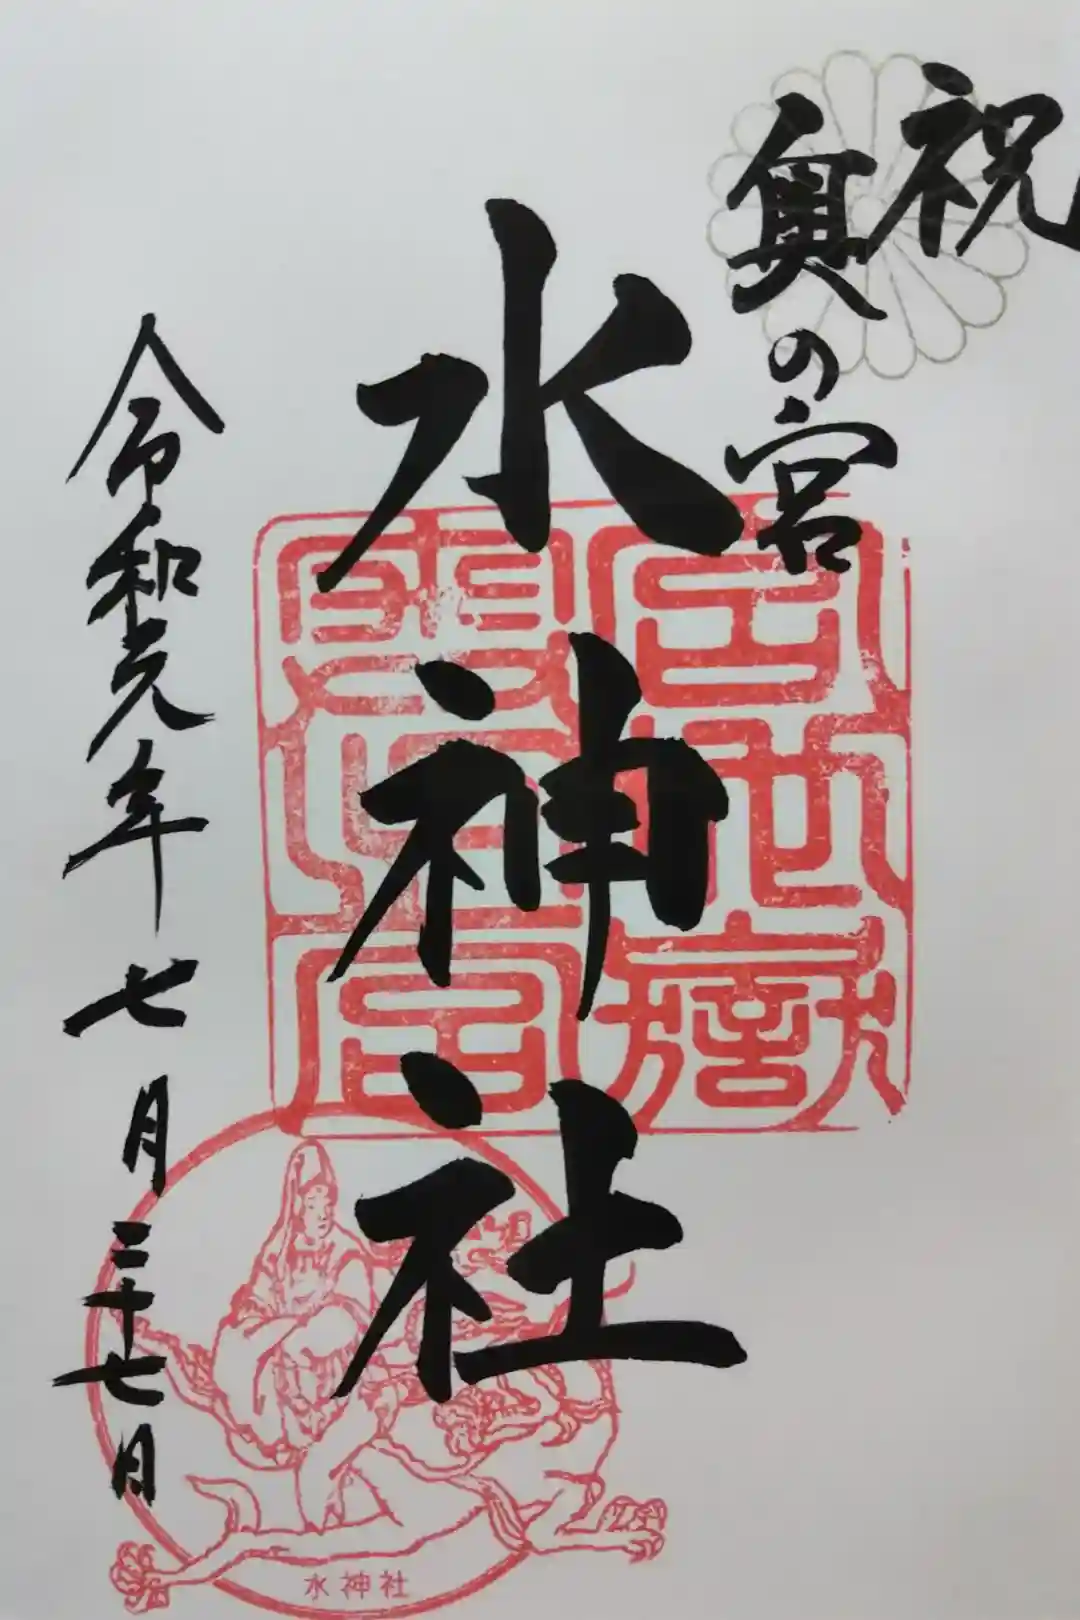 祝
奥の宮
水神社
令和元年七月二十七日
水神社